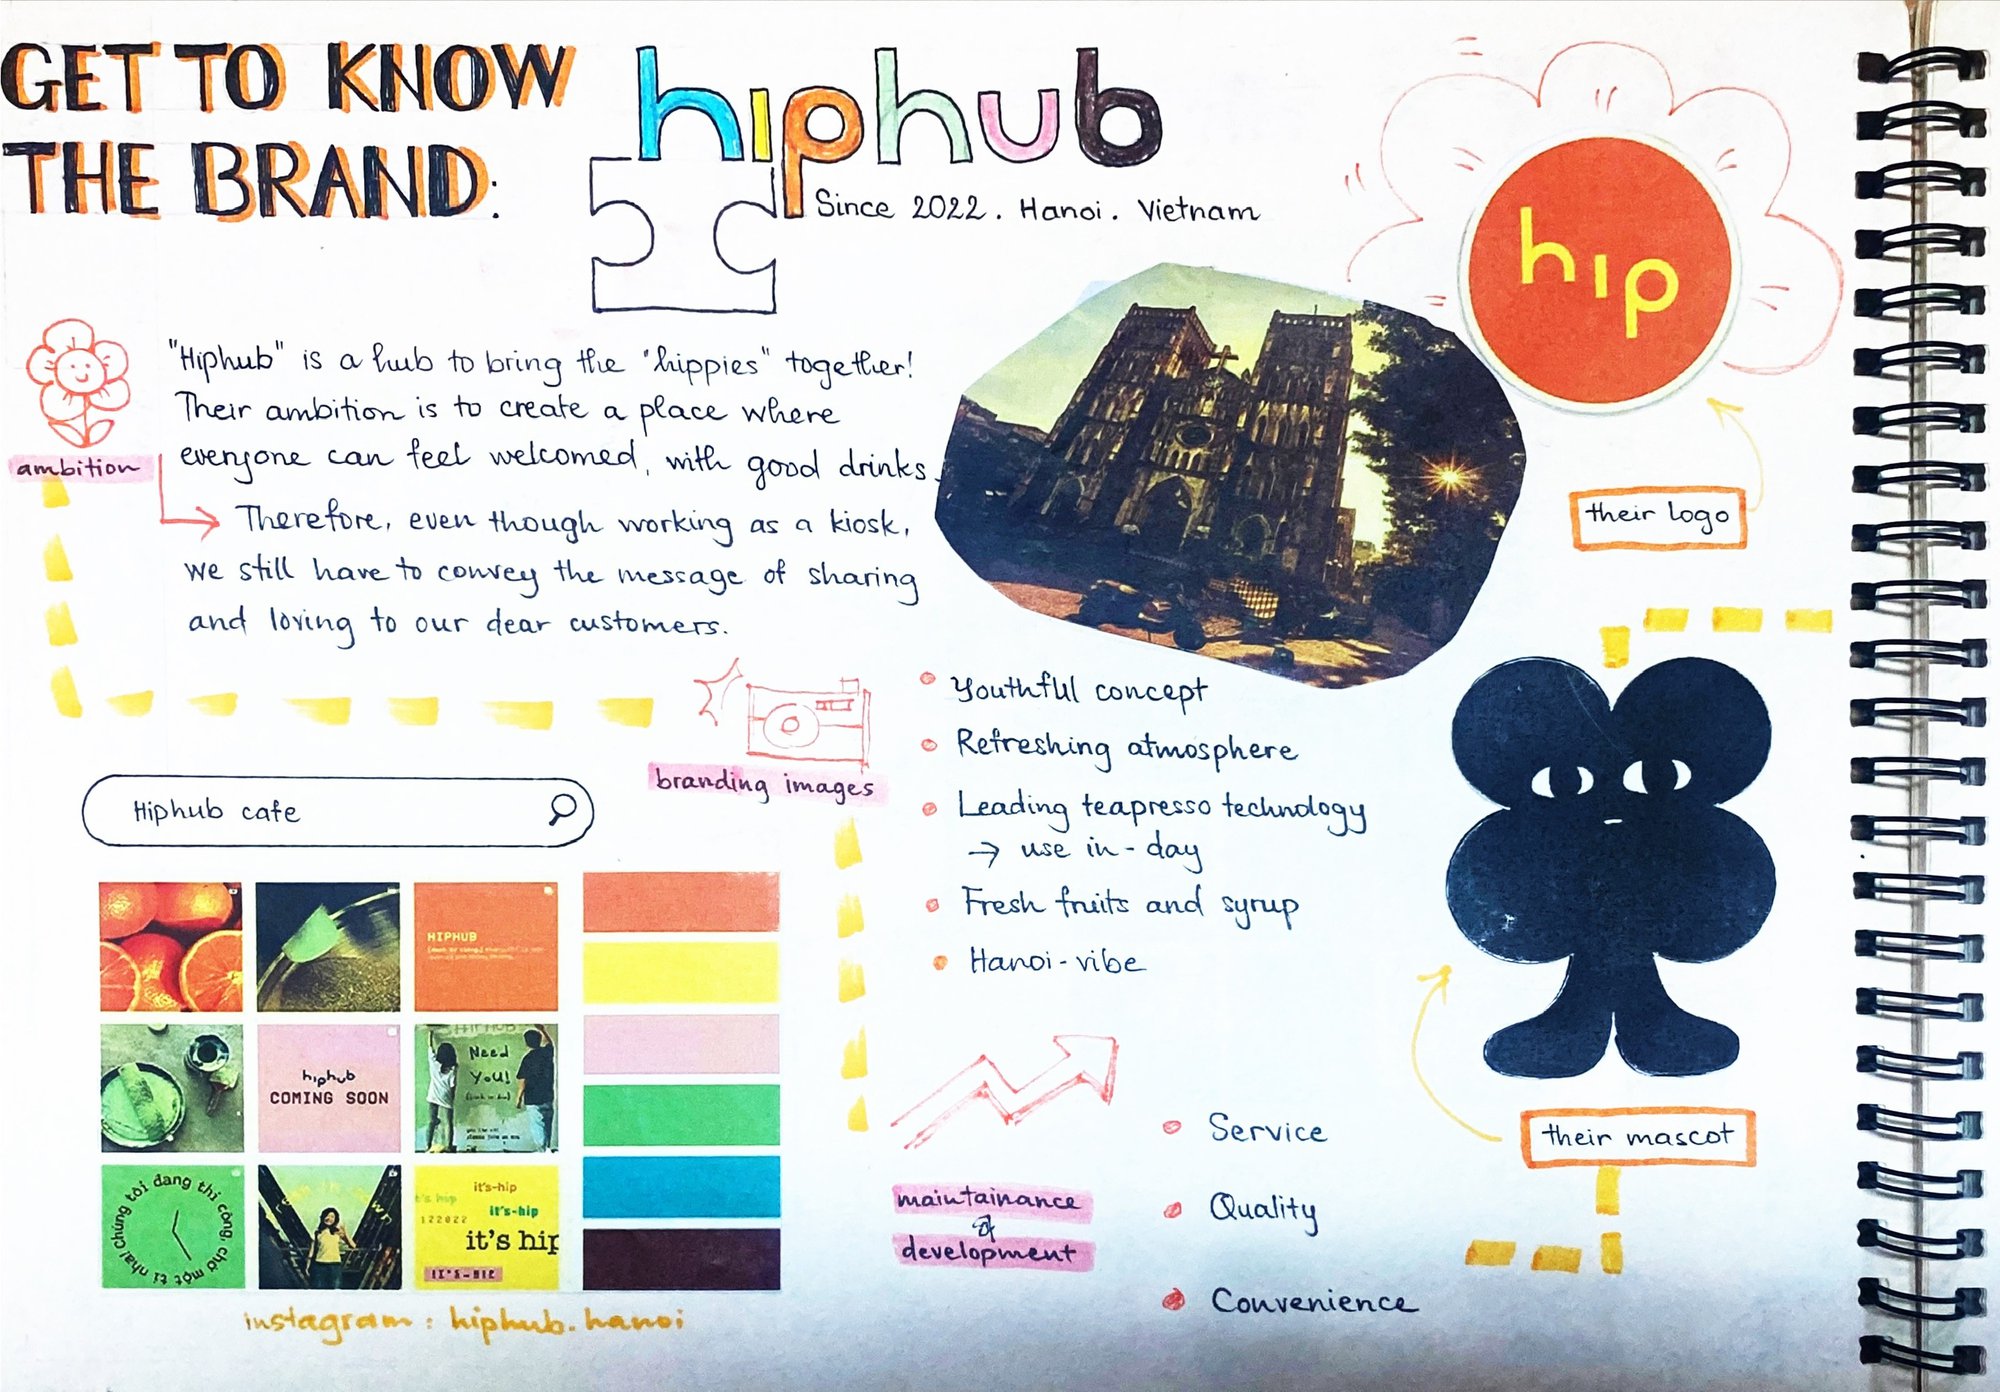 GET TO KNOW
THE BRAND:
hiphub
Since 2022. Hanoi. Vietnam
hip
their logo
ambition
"Hiphub" is a hub to bring the "hippies" together!
Their ambition is to create a place where
everyone can feel welcomed, with good drinks.
→ Therefore, even though working as a kiosk,
we still have to convey the message of sharing
and loving to our dear customers.
branding images
Youthful concept
Refreshing atmosphere
Leading teapresso technology
→ use in-day
Fresh fruits and syrup
Hanoi-vibe
their mascot
Hiphub cafe
HIPHUB
hiphub
COMING SOON
HIPHUB
Need
You!
Chúng tôi đang thi công, chờ một tí nha!
it's-hip
it's hip
it's-hip
122022
it's hip
IT'S-HIP
instagram: hiphub.hanoi
maintainance
&
development
Service
Quality
Convenience